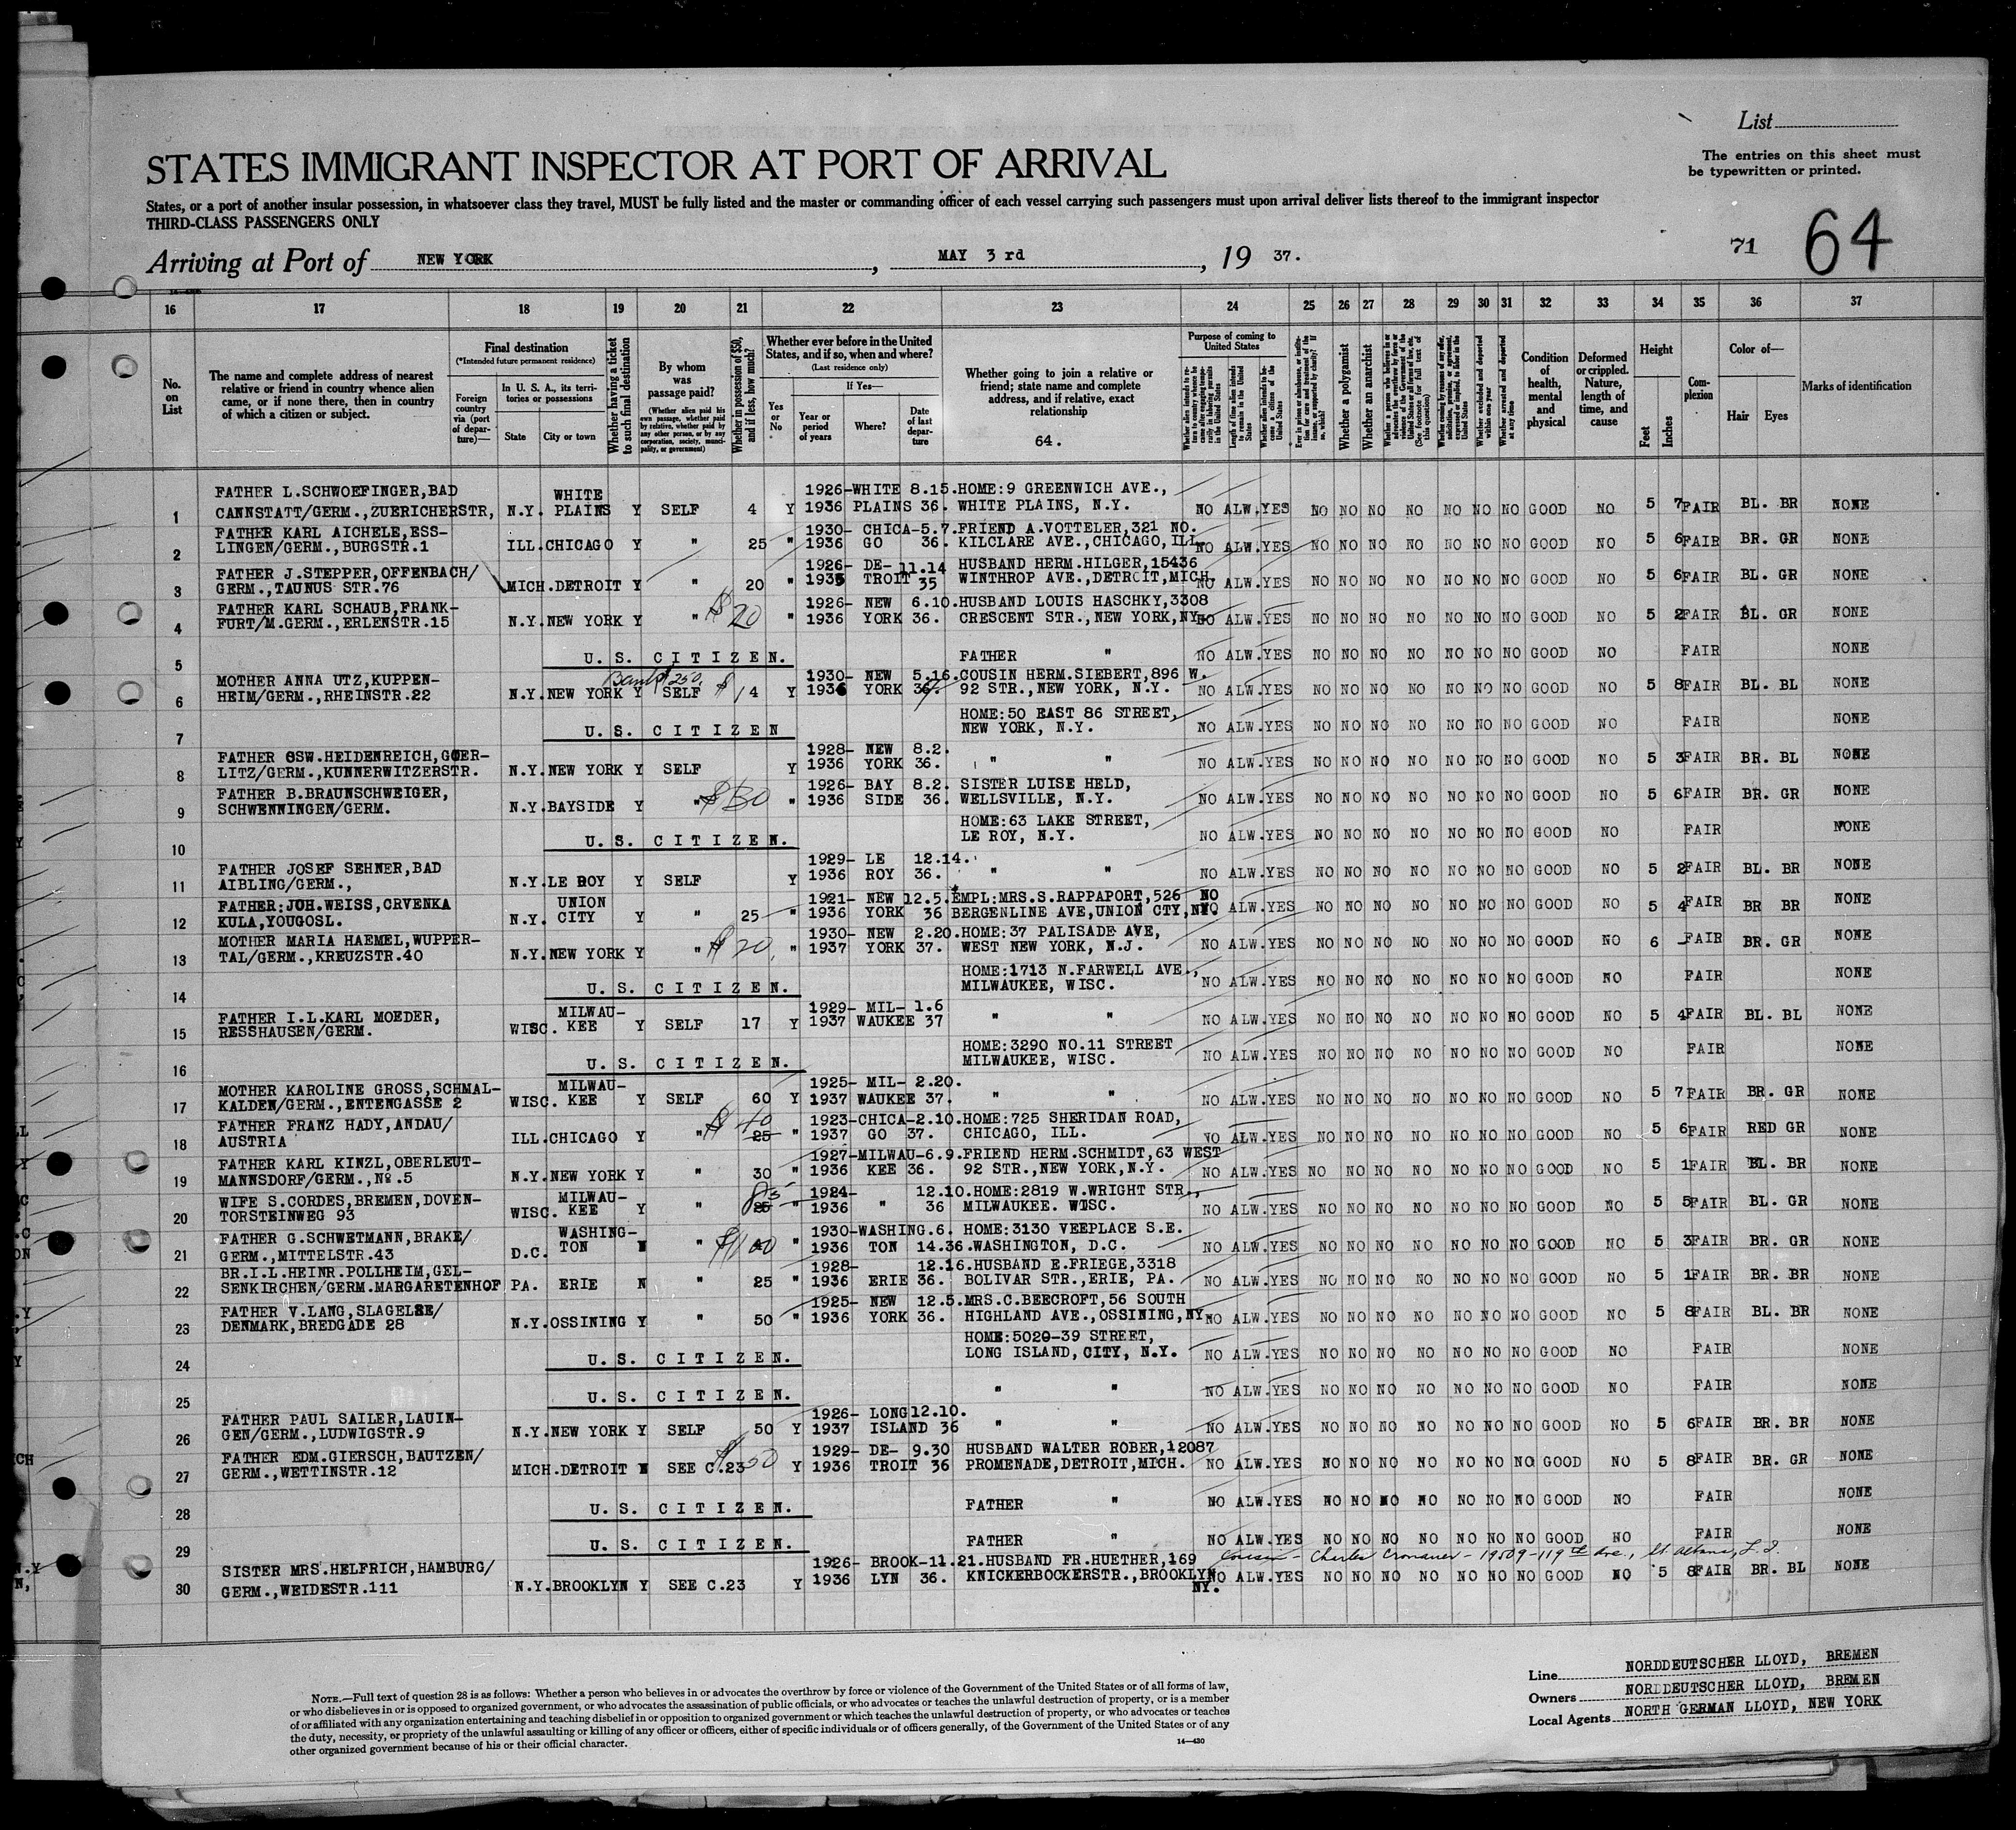 List
STATES IMMIGRANT INSPECTOR AT PORT OF ARRIVAL
The entries on this sheet must
be typewritten or printed.
States, or a port of another insular possession, in whatsoever class they travel, MUST be fully listed and the master or commanding officer of each vessel carrying such passengers must upon arrival deliver lists thereof to the immigrant inspector
THIRD-CLASS PASSENGERS ONLY
71 64
Arriving at Port of NEW YORK, MAY 3 rd, 19 37.
16 17 18 19 20 21 22 23 24 25 26 27 28 29 30 31 32 33 34 35 36 37
No. on List
The name and complete address of nearest relative or friend in country whence alien came, or if none there, then in country of which a citizen or subject.
Final destination
(*Intended future permanent residence)
Foreign country via (port of departure)—
In U. S. A., its territories or possessions
State City or town
Whether having a ticket to such final destination
By whom was passage paid?
(Whether alien paid his own passage, whether paid by relative, whether paid by any other person, or by any corporation, society, municipality, or government)
Whether in possession of $50, and if less, how much?
Whether ever before in the United States, and if so, when and where?
(Last residence only)
Yes or No
If Yes—
Year or period of years
Where?
Date of last departure
Whether going to join a relative or friend; state name and complete address, and if relative, exact relationship
64.
Purpose of coming to United States
Whether a polygamist
Whether an anarchist
Whether arrested and deported at any time
Condition of health, mental and physical
Deformed or crippled. Nature, length of time, and cause
Height
Feet Inches
Complexion
Color of—
Hair Eyes
Marks of identification
1 FATHER L.SCHWOEFINGER,BAD CANNSTATT/GERM.,ZUERICHERSTR, N.Y. WHITE PLAINS Y SELF 4 Y 1926-1936 WHITE PLAINS 8.15.36. HOME:9 GREENWICH AVE., WHITE PLAINS, N.Y. NO ALW.YES NO NO NO NO NO NO NO GOOD NO 5 7 FAIR BL. BR NONE
2 FATHER KARL AICHELE,ESS-LINGEN/GERM.,BURGSTR.1 ILL.CHICAGO Y " 25 " 1930-1936 CHICA-GO 5.7.36. FRIEND A.VOTTELER,321 NO. KILCLARE AVE.,CHICAGO,ILL. NO ALW.YES NO NO NO NO NO NO NO GOOD NO 5 6 FAIR BR. GR NONE
3 FATHER J.STEPPER,OFFENBACH/GERM.,TAUNUS STR.76 MICH.DETROIT Y " 20 " 1926-1935 DE-TROIT 11.14 35 HUSBAND HERM.HILGER,15436 WINTHROP AVE.,DETROIT,MICH. NO ALW.YES NO NO NO NO NO NO NO GOOD NO 5 6 FAIR BL. GR NONE
4 FATHER KARL SCHAUB,FRANK-FURT/M.GERM.,ERLENSTR.15 N.Y.NEW YORK Y " $20 " 1926-1936 NEW YORK 6.10.36. HUSBAND LOUIS HASCHKY,3308 CRESCENT STR.,NEW YORK,NY. NO ALW.YES NO NO NO NO NO NO NO GOOD NO 5 2 FAIR BL. GR NONE
5 U. S. CITIZEN. FATHER " NO ALW.YES NO NO NO NO NO NO NO GOOD NO FAIR NONE
6 MOTHER ANNA UTZ,KUPPEN-HEIM/GERM.,RHEINSTR.22 N.Y.NEW YORK Y SELF Bank $250. $14 Y 1930-1936 NEW YORK 5.16.36. COUSIN HERM.SIEBERT,896 W. 92 STR.,NEW YORK, N.Y. NO ALW.YES NO NO NO NO NO NO NO GOOD NO 5 8 FAIR BL. BL NONE
7 U. S. CITIZEN HOME:50 EAST 86 STREET, NEW YORK, N.Y. NO ALW.YES NO NO NO NO NO NO NO GOOD NO FAIR NONE
8 FATHER OSW.HEIDENREICH,GOER-LITZ/GERM.,KUNNERWITZERSTR. N.Y.NEW YORK Y SELF Y 1928-1936 NEW YORK 8.2.36. " " NO ALW.YES NO NO NO NO NO NO NO GOOD NO 5 3 FAIR BR. BL NONE
9 FATHER B.BRAUNSCHWEIGER, SCHWENNINGEN/GERM. N.Y.BAYSIDE Y " $30 " 1926-1936 BAY SIDE 8.2.36. SISTER LUISE HELD, WELLSVILLE, N.Y. NO ALW.YES NO NO NO NO NO NO NO GOOD NO 5 6 FAIR BR. GR NONE
10 U. S. CITIZEN. HOME:63 LAKE STREET, LE ROY, N.Y. NO ALW.YES NO NO NO NO NO NO NO GOOD NO FAIR NONE
11 FATHER JOSEF SEHNER,BAD AIBLING/GERM., N.Y.LE ROY Y SELF Y 1929-1936 LE ROY 12.14.36. " " NO ALW.YES NO NO NO NO NO NO NO GOOD NO 5 2 FAIR BL. BR NONE
12 FATHER:JOH.WEISS,CRVENKA KULA,YOUGOSL. N.Y. UNION CITY Y " 25 " 1921-1936 NEW YORK 12.5.36 EMPL:MRS.S.RAPPAPORT,526 NO BERGENLINE AVE,UNION CTY,NY. NO ALW.YES NO NO NO NO NO NO NO GOOD NO 5 4 FAIR BR BR NONE
13 MOTHER MARIA HAEMEL,WUPPER-TAL/GERM.,KREUZSTR.40 N.Y.NEW YORK Y " $20. " 1930-1937 NEW YORK 2.20.37. HOME:37 PALISADE AVE, WEST NEW YORK, N.J. NO ALW.YES NO NO NO NO NO NO NO GOOD NO 6 - FAIR BR. GR NONE
14 U. S. CITIZEN. HOME:1713 N.FARWELL AVE., MILWAUKEE, WISC. NO ALW.YES NO NO NO NO NO NO NO GOOD NO FAIR NONE
15 FATHER I.L.KARL MOEDER, RESSHAUSEN/GERM. WISC. MILWAU-KEE Y SELF 17 Y 1929-1937 MIL-WAUKEE 1.6 37 " " NO ALW.YES NO NO NO NO NO NO NO GOOD NO 5 4 FAIR BL. BL NONE
16 U. S. CITIZEN. HOME:3290 NO.11 STREET MILWAUKEE, WISC. NO ALW.YES NO NO NO NO NO NO NO GOOD NO FAIR NONE
17 MOTHER KAROLINE GROSS,SCHMAL-KALDEN/GERM.,ENTENGASSE 2 WISC. MILWAU-KEE Y SELF 60 Y 1925-1937 MIL-WAUKEE 2.20.37. " " NO ALW.YES NO NO NO NO NO NO NO GOOD NO 5 7 FAIR BR. GR NONE
18 FATHER FRANZ HADY,ANDAU/AUSTRIA ILL.CHICAGO Y " $10 25 " 1923-1937 CHICA-GO 2.10.37. HOME:725 SHERIDAN ROAD, CHICAGO, ILL. NO ALW.YES NO NO NO NO NO NO NO GOOD NO 5 6 FAIR RED GR NONE
19 FATHER KARL KINZL,OBERLEUT-MANNSDORF/GERM.,No.5 N.Y.NEW YORK Y " 30 " 1927-1936 MILWAU-KEE 6.9.36. FRIEND HERM.SCHMIDT,63 WEST 92 STR.,NEW YORK,N.Y. NO ALW.YES NO NO NO NO NO NO NO GOOD NO 5 1 FAIR BL. BR NONE
20 WIFE S.CORDES,BREMEN,DOVEN-TORSTEINWEG 93 WISC. MILWAU-KEE Y " " 1924-1936 " 12.10.36 HOME:2819 W.WRIGHT STR., MILWAUKEE. WISC. NO ALW.YES NO NO NO NO NO NO NO GOOD NO 5 5 FAIR BL. GR NONE
21 FATHER G.SCHWETMANN,BRAKE/GERM.,MITTELSTR.43 D.C. WASHING-TON N " $100 " 1930-1936 WASHING.TON 6.14.36. HOME:3130 VEEPLACE S.E. WASHINGTON, D.C. NO ALW.YES NO NO NO NO NO NO NO GOOD NO 5 3 FAIR BR. GR NONE
22 BR.I.L.HEINR.POLLHEIM,GEL-SENKIRCHEN/GERM.MARGARETENHOF PA. ERIE N " 25 " 1928-1936 ERIE 12.16.36. HUSBAND E.FRIEGE,3318 BOLIVAR STR.,ERIE, PA. NO ALW.YES NO NO NO NO NO NO NO GOOD NO 5 1 FAIR BR. BR NONE
23 FATHER V.LANG,SLAGELSE/DENMARK,BREDGADE 28 N.Y.OSSINING Y " 50 " 1925-1936 NEW YORK 12.5.36. MRS.C.BEECROFT,56 SOUTH HIGHLAND AVE.,OSSINING,NY NO ALW.YES NO NO NO NO NO NO NO GOOD NO 5 8 FAIR BL. BR NONE
24 U. S. CITIZEN. HOME:5020-39 STREET, LONG ISLAND,CITY, N.Y. NO ALW.YES NO NO NO NO NO NO NO GOOD NO FAIR NONE
25 U. S. CITIZEN. " " NO ALW.YES NO NO NO NO NO NO NO GOOD NO FAIR NONE
26 FATHER PAUL SAILER,LAUIN-GEN/GERM.,LUDWIGSTR.9 N.Y.NEW YORK Y SELF 50 Y 1926-1937 LONG ISLAND 12.10.36 " " NO ALW.YES NO NO NO NO NO NO NO GOOD NO 5 6 FAIR BR. BR NONE
27 FATHER EDM.GIERSCH,BAUTZEN/GERM.,WETTINSTR.12 MICH.DETROIT N SEE C.23 $50 Y 1929-1936 DE-TROIT 9.30 36 HUSBAND WALTER ROBER,12087 PROMENADE,DETROIT,MICH. NO ALW.YES NO NO NO NO NO NO NO GOOD NO 5 8 FAIR BR. GR NONE
28 U. S. CITIZEN. FATHER " NO ALW.YES NO NO NO NO NO NO NO GOOD NO FAIR NONE
29 U. S. CITIZEN. FATHER " NO ALW.YES NO NO NO NO NO NO NO GOOD NO FAIR NONE
Cousin - Charles Cronauer - 19509-119th Ave., St Albans, L.I.
30 SISTER MRS.HELFRICH,HAMBURG/GERM.,WEIDESTR.111 N.Y.BROOKLYN Y SEE C.23 Y 1926-1936 BROOK-LYN 11.21.36. HUSBAND FR.HUETHER,169 KNICKERBOCKERSTR.,BROOKLYN NY. NO ALW.YES NO NO NO NO NO NO NO GOOD NO 5 8 FAIR BR. BL NONE
NOTE.—Full text of question 28 is as follows: Whether a person who believes in or advocates the overthrow by force or violence of the Government of the United States or of all forms of law,
or who disbelieves in or is opposed to organized government, or who advocates the assassination of public officials, or who advocates or teaches the unlawful destruction of property, or is a member
of or affiliated with any organization entertaining and teaching disbelief in or opposition to organized government or which teaches the unlawful destruction of property, or who advocates or teaches
the duty, necessity, or propriety of the unlawful assaulting or killing of any officer or officers, either of specific individuals or of officers generally, of the Government of the United States or of any
other organized government because of his or their official character.
14—430
Line NORDDEUTSCHER LLOYD, BREMEN
Owners NORDDEUTSCHER LLOYD, BREMEN
Local Agents NORTH GERMAN LLOYD, NEW YORK